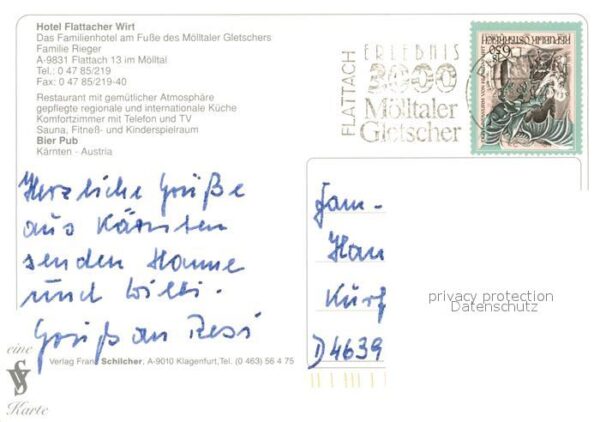 Hotel Flattacher Wirt
Das Familienhotel am Fuße des Mölltaler Gletschers
Familie Rieger
A-9831 Flattach 13 im Mölltal
Tel.: 0 47 85/219
Fax: 0 47 85/219-40
Restaurant mit gemütlicher Atmosphäre
gepflegte regionale und internationale Küche
Komfortzimmer mit Telefon und TV
Sauna, Fitneß- und Kinderspielraum
Bier Pub
Kärnten - Austria
FLATTACH
ERLEBNIS
3000
Mölltaler
Gletscher
REPUBLIK ÖSTERREICH
6.50
Herzliche Grüße
aus Kärnten
senden Hanne
und Willi.
Gruß an Resi
Fam.
Han
Kurf
D4639
privacy protection
Datenschutz
Verlag Franz Schilcher, A-9010 Klagenfurt, Tel. (0 463) 56 4 75
eine
Karte